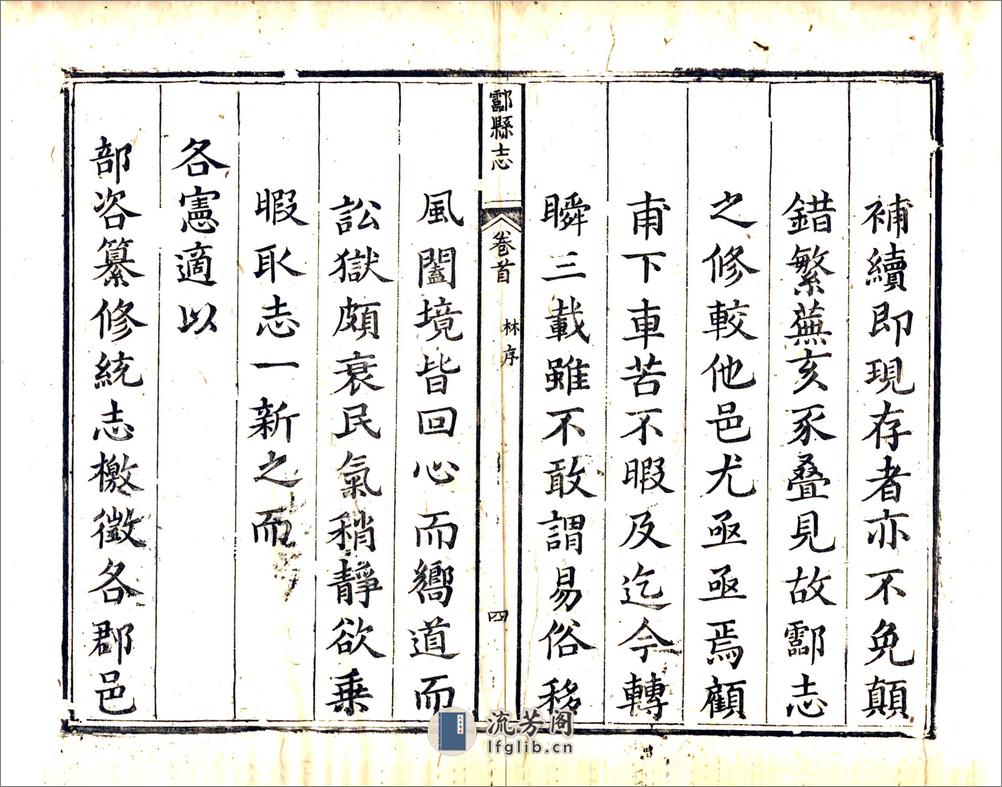 補續即現存者亦不免顛
錯繁蕪亥豕叠見故酃志
之修較他邑尤亟亟焉顧
甫下車苦不暇及迄今轉
瞬三載雖不敢謂易俗移
酃縣志
卷首
林序
四
風闔境皆回心而嚮道而
訟獄頗衰民氣稍靜欲乗
暇取志一新之而
各憲適以
部咨纂修統志檄徵各郡邑
流芳阁
lfglib.cn